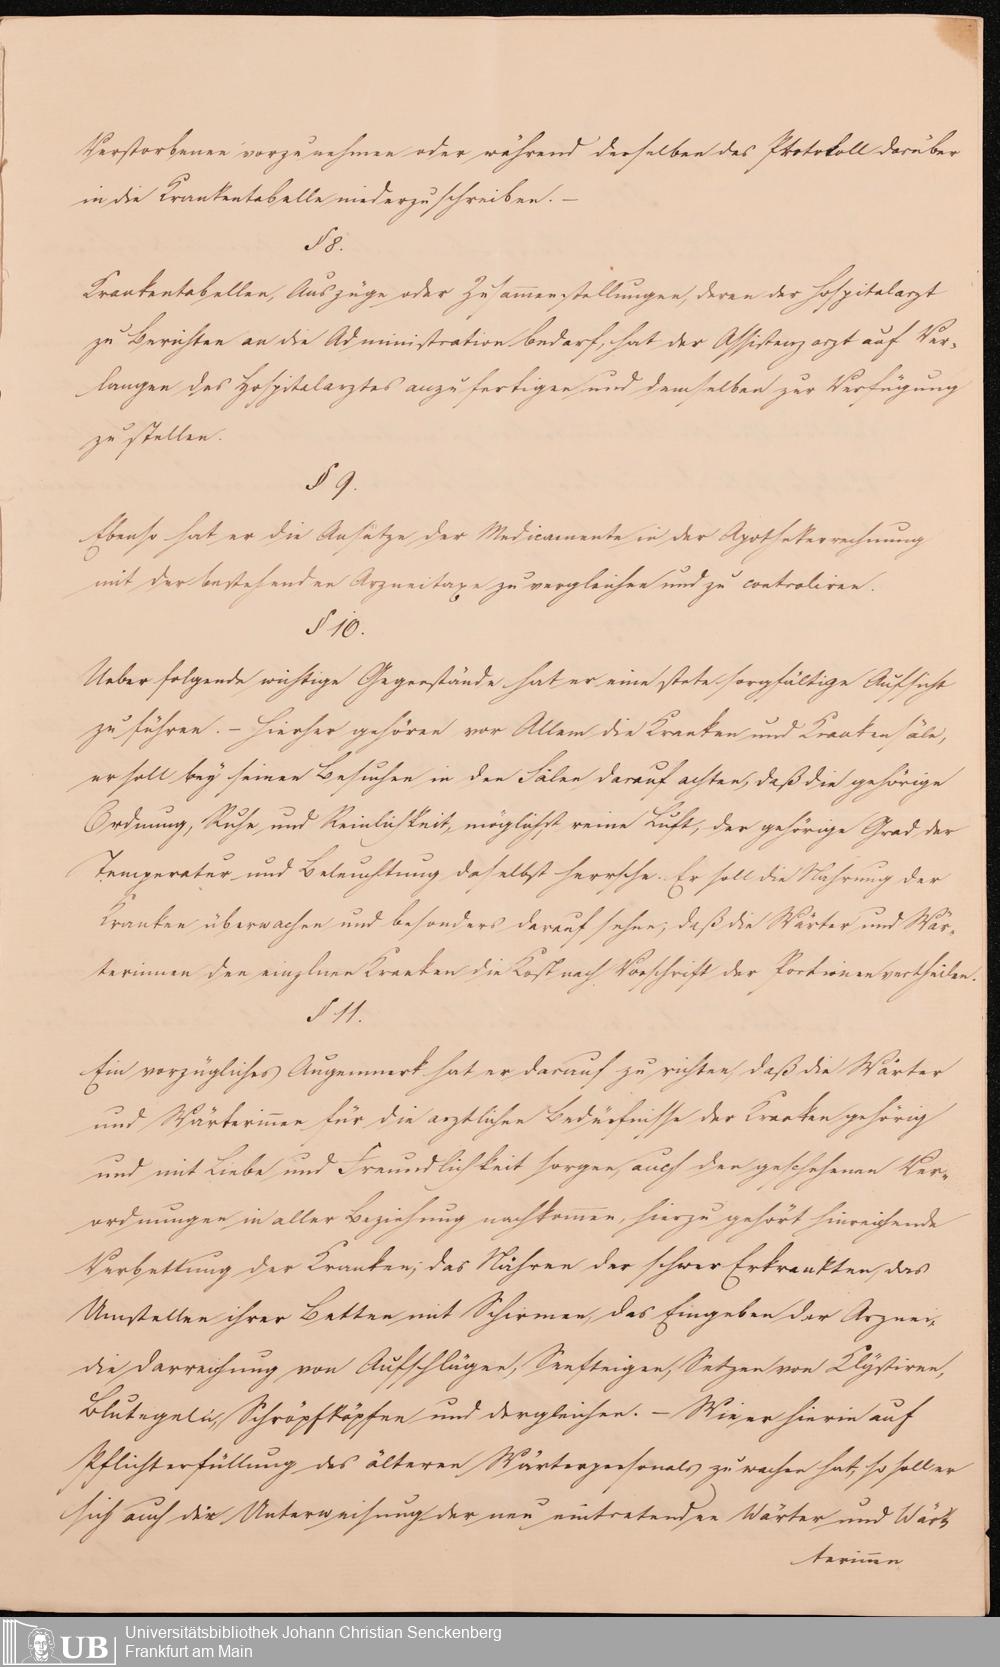 Verstorbenen vorzunehmen oder während derselben das Protokoll darüber
in die Krankentabelle niederzuschreiben. –
§ 8.
Krankentabellen, Auszüge oder Zusam̅enstellungen, deren der Hospitalarzt
zu Berichten an die Administration bedarf, hat der Assistenzarzt auf Ver-
langen des Hospitalarztes anzufertigen und demselben zur Verfügung
zu stellen.
§ 9.
Ebenso hat er die Ansätze der Medicamente in der Apothekerrechnung
mit der bestehenden Arzneitaxe zu vergleichen und zu controliren.
§ 10.
Ueber folgende wichtige Gegenstände hat er eine stete sorgfältige Aufsicht
zu führen. – Hierher gehören vor Allem die Kranken und Krankensäle,
er soll bey seinen Besuchen in den Sälen darauf achten, daß die gehörige
Ordnung, Ruhe und Reinlichkeit, möglichst reine Luft, der gehörige Grad der
Temperatur und Beleuchtung daselbst herrsche. Er soll die Nahrung der
Kranken überwachen und besonders darauf sehen, daß die Wärter und Wär-
terinnen den einzlnen Kranken die Kost nach Vorschrift der Portionen vertheilen.
§ 11.
Ein vorzügliches Augenmerk hat er darauf zu richten, daß die Wärter
und Wärterin̅en für die arztlichen Bedürfnisse der Kranken gehörig
und mit Liebe und Freundlichkeit sorgen, auch den geschehenen Ver-
ordnungen in aller Beziehung nachkom̅en, hierzu gehört hinreichende
Verbettung der Kranken, das Nähren der schwer Erkrankten, das
Umstellen ihrer Betten mit Schirmen, das Eingeben der Arznei,
die Darreichung von Aufschlägen, Senfteigen, Setzen von Klystiren,
Blutegeln, Schröpfköpfen und dergleichen. – Wie er hierin auf
Pflichterfüllung des älteren Wärterpersonals zu wachen hat, so soll er
sich auch der Unterweisung der neu eintretenden Wärter und Wär-
terin̅en
UB Universitätsbibliothek Johann Christian Senckenberg
Frankfurt am Main